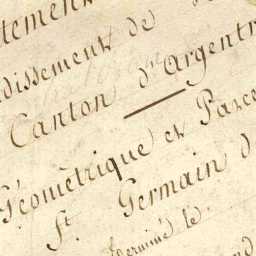 tement
dissement de
Canton d'Argentr
Géométrique et Parce
St. Germain d
Terminé le